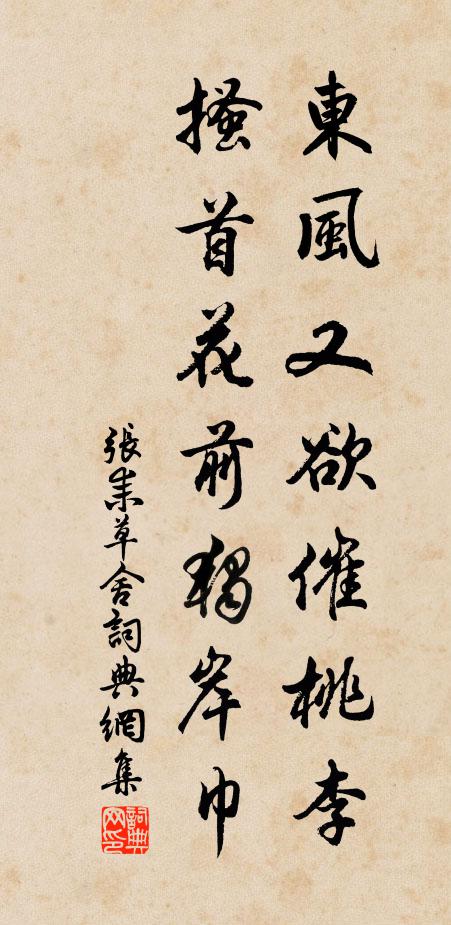 東風又欲催桃李
搔首花前獨岸巾
張朱草舍詞典網集
詞典網印